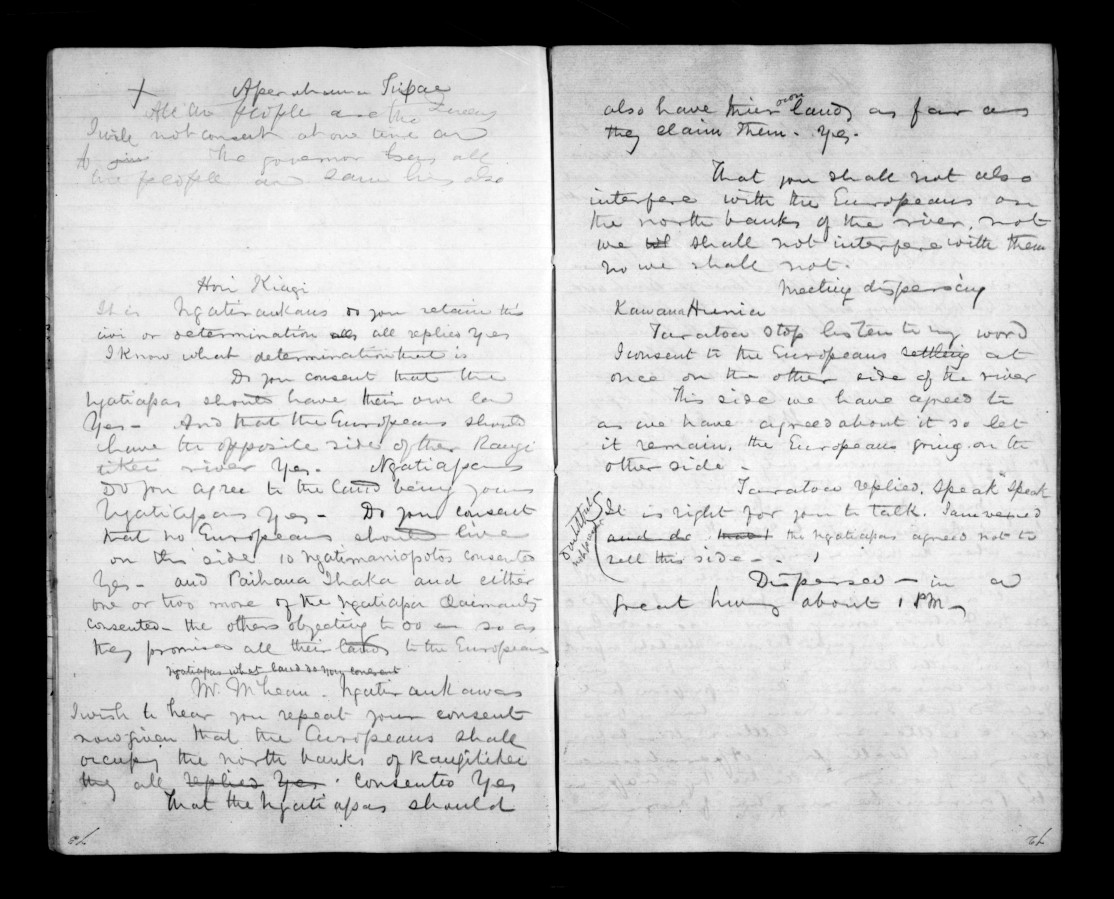 Aperahama Tipae
All the people are the Queens
I will not consent at one time and
The governor buys all
the people and same lies also
Hori Kingi
It is Ngatiraukaus do you retain this
iwi or determination all replies yes
I know what determination that is
Do you consent that the
Ngatiapas should have their own land
Yes - And that the Europeans should
have the opposite side of the Rangi
tikei river Yes. Ngatiapas
Do you agree to the land being yours
Ngatiapas Yes - Do you consent
that no Europeans should live
on this side 10 Ngatimaniopotos consented
Yes - and Paihana Shaka and either
one or two more of the Ngatiapa Claimants
consented - the others objecting to do so as
they promised all their lands to the Europeans
Ngatiapas what land do you consent
Mr. McLean. Ngatiraukawas
I wish to hear you repeat your consent
now given that the Europeans shall
occupy the north banks of Rangitikei
they all replied Yes. Consented Yes
That the Ngatiapas should
also have their own lands as far as
they claim them. Yes.
That you shall not also
interfere with the Europeans on
the north banks of the river, not
we shall not interfere with them
no we shall not.
Meeting dispersing
Kawana Hunia
Taratoa stop listen to my word
I consent to the Europeans settling at
once on the other side of the river
This side we have agreed to
as we have agreed about it so let
it remain, the Europeans going on the
other side -
Taratoa replied. Speak Speak
It is right for you to talk. I am vexed
and do the Ngatiapas agreed not to
sell this side - -
Dispersed - in a
great hurry about 1 PM